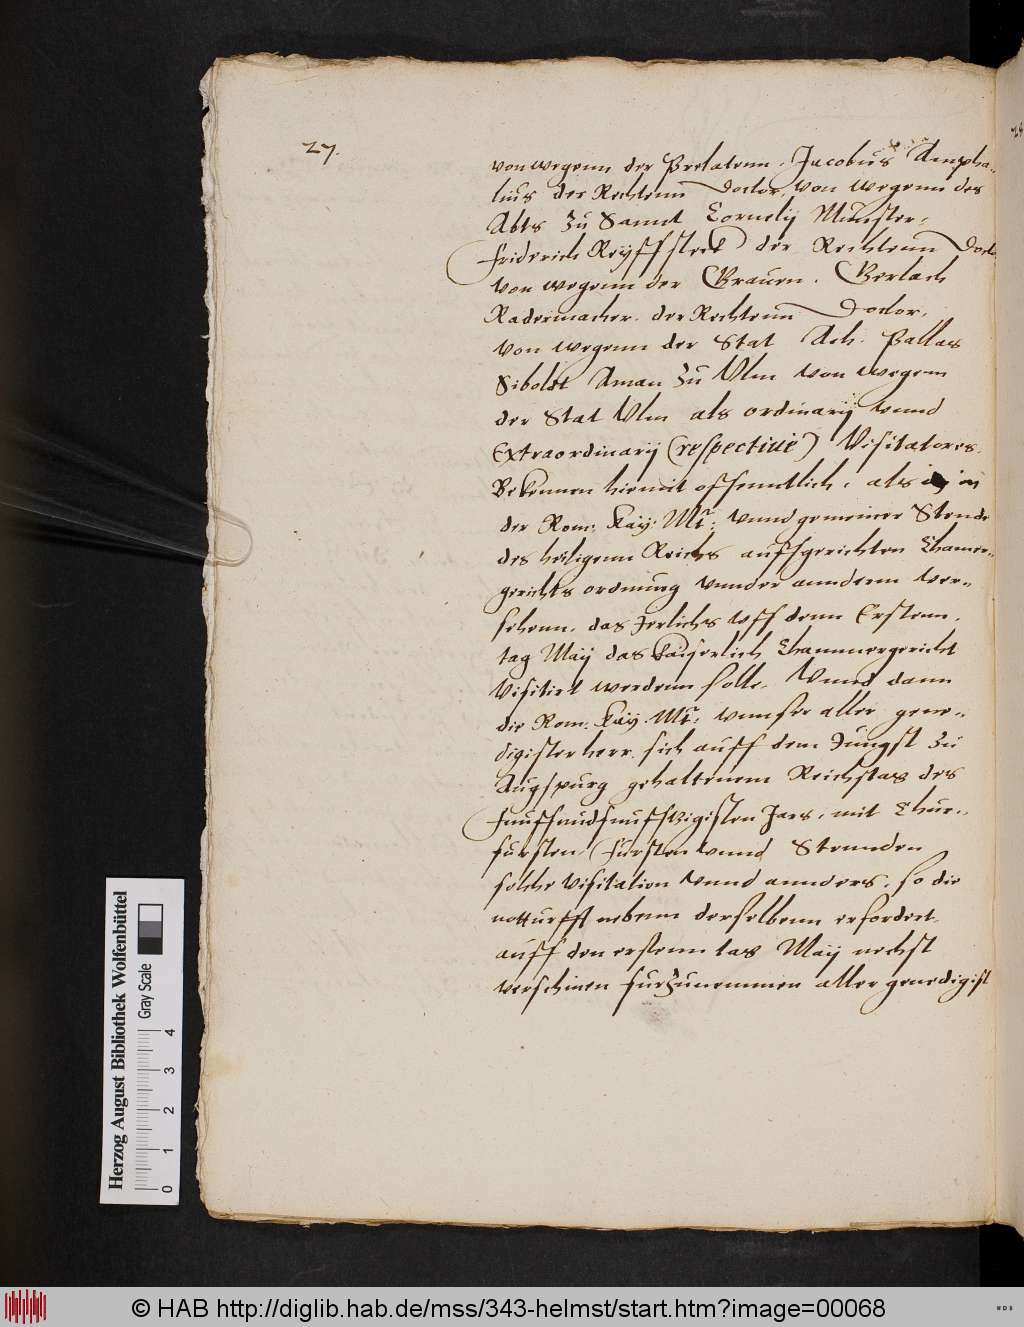 27.
von wegenn der Prelatenn. Jacobus Ampha-
lius der Rechtenn Doctor, von wegenn des
Abts zu Sannt Cornelij Münster,
Friderich Reyffsteck der Rechtenn Doctor
von wegenn der Grauen. Gerlach
Radermacher. der Rechtenn Doctor,
von wegenn der Stat Ach. Pallas
Siboldt Aman zu Ulm von wegenn
der Stat Ulm als ordinarij vnnd
Extraordinarij (respectiue) Visitatores.
Bekennen hiemit offenntlich, als in
der Rom: Kay: Mt: vnnd gemeiner Stende
des heiligenn Reichs auffgerichten Chamer-
gerichts ordnung vnnder annderm ver-
sehenn, das Jerlichs vff denn Erstenn
tag Maÿ das Kaiserlich Chammergericht
Visitirt werdenn solle. Vnnd dann
die Rom: Kay: Mt: vnnser aller gene-
digister herr sich auff dem Jungst zu
Augspurg gehaltenem Reichstag des
funffundfunfftzigisten Jars, mit Chur-
fursten, Fursten vnnd Stennden
solche Visitation vnnd annders, so die
notturfft nebenn derselbenn erfordert
auff den erstenn tag Maÿ nechst
verschinen furzunemmen aller genedigist
28
Herzog August Bibliothek Wolfenbüttel
Gray Scale
0 1 2 3 4
© HAB http://diglib.hab.de/mss/343-helmst/start.htm?image=00068
WDB